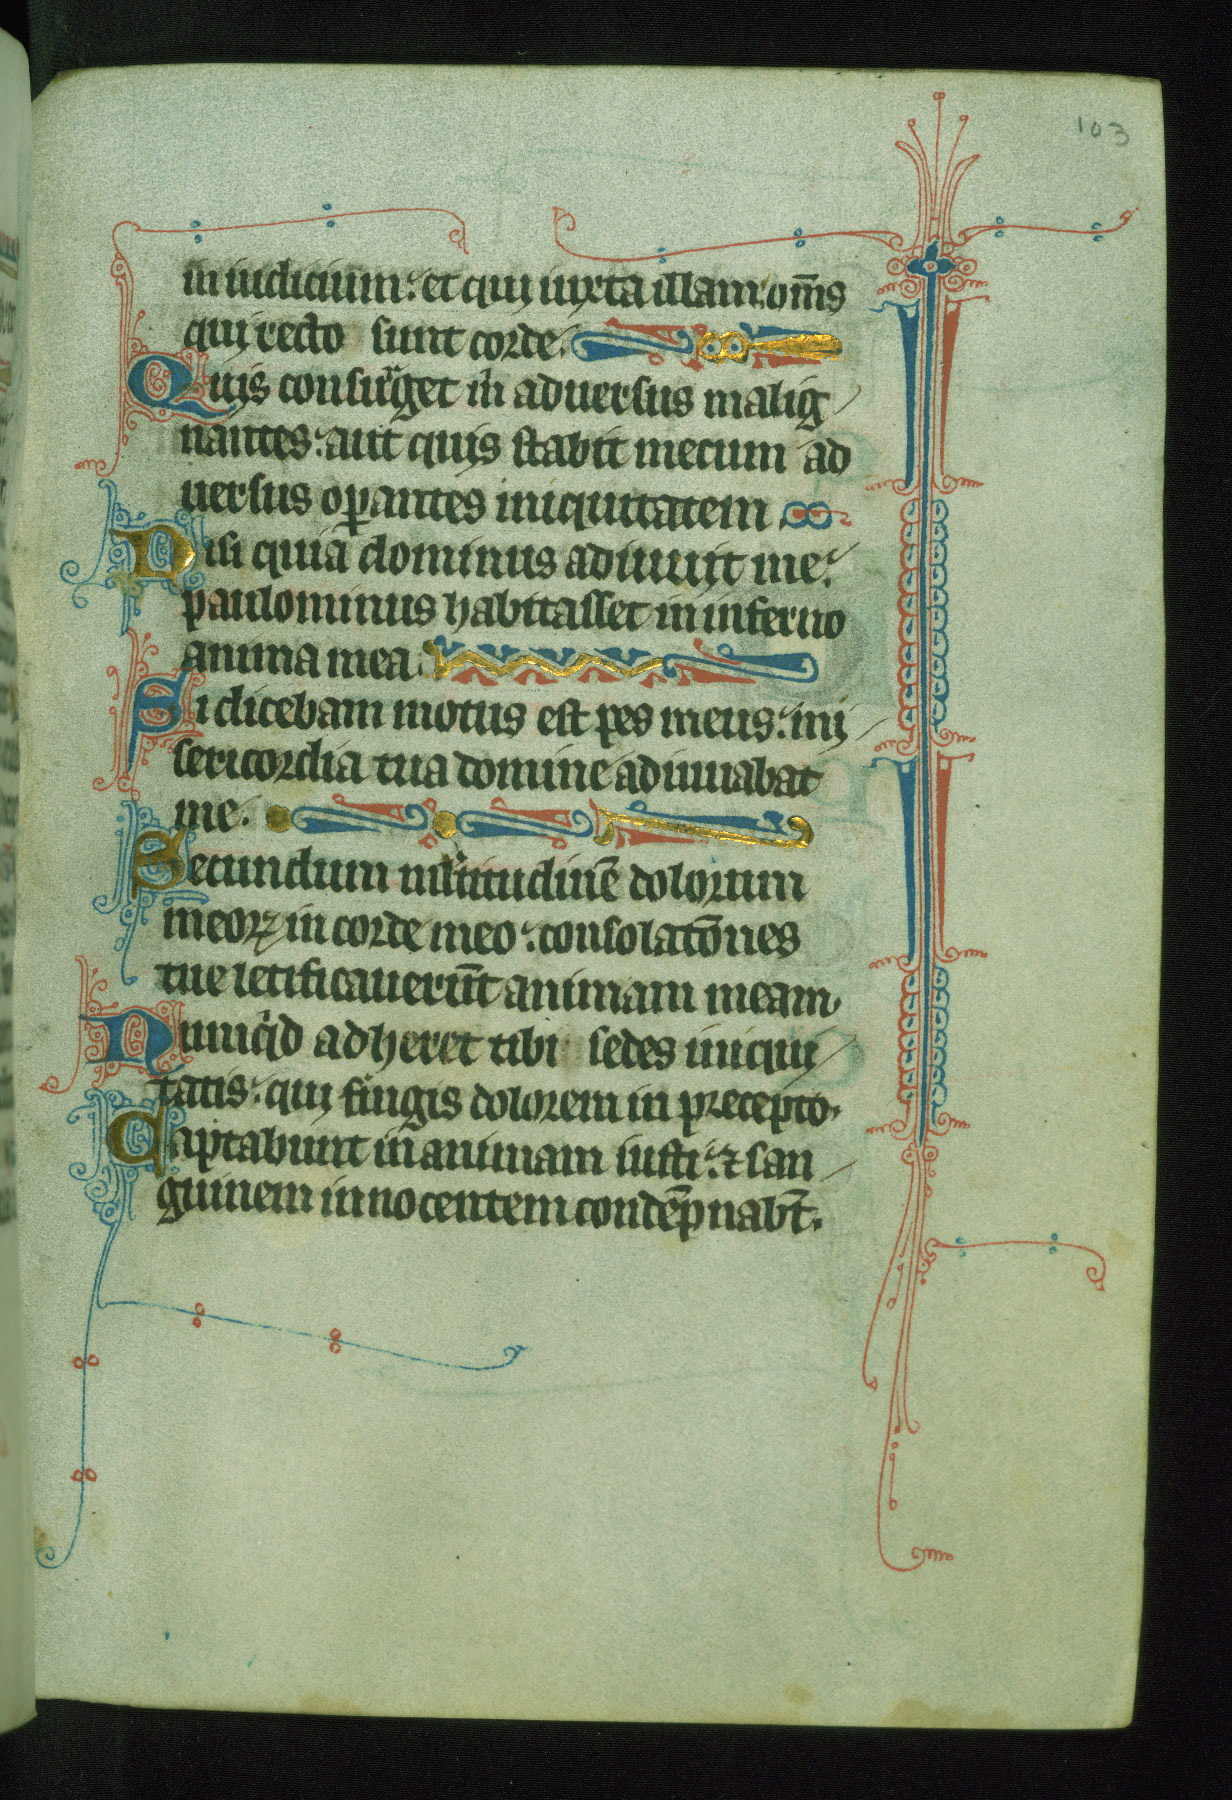 103
in iudicium: et qui iuxta illam om̄s
qui recto sunt corde.
Quis consurget m̄ adversus malig
nantes: aut quis stabit mecum ad
uersus oꝑantes iniquitatem
Nisi quia dominus adiuuit me:
paulominus habitasset in inferno
anima mea.
Si dicebam motus est pes meus: mi
sericordia tua domine adiuuabat
me.
Secundum ml̓titudinē dolorum
meoꝝ in corde meo: consolatōnes
tue letificauerūt animam meam.
Nunq̇d adheret tibi sedes iniqui
tatis: qui fingis dolorem in precepto.
Captabunt in animam iusti: ⁊ san
guinem innocentem condēpnabt̄.